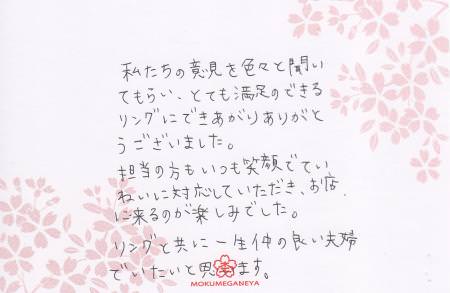 私たちの意見を色々と聞い
てもらい、とても満足のできる
リングにできあがりありがと
うございました。
担当の方もいつも笑顔でてい
ねいに対応していただき、お店
に来るのが楽しみでした。
リングと共に一生仲の良い夫婦
でいたいと思います。
MOKUMEGANEYA